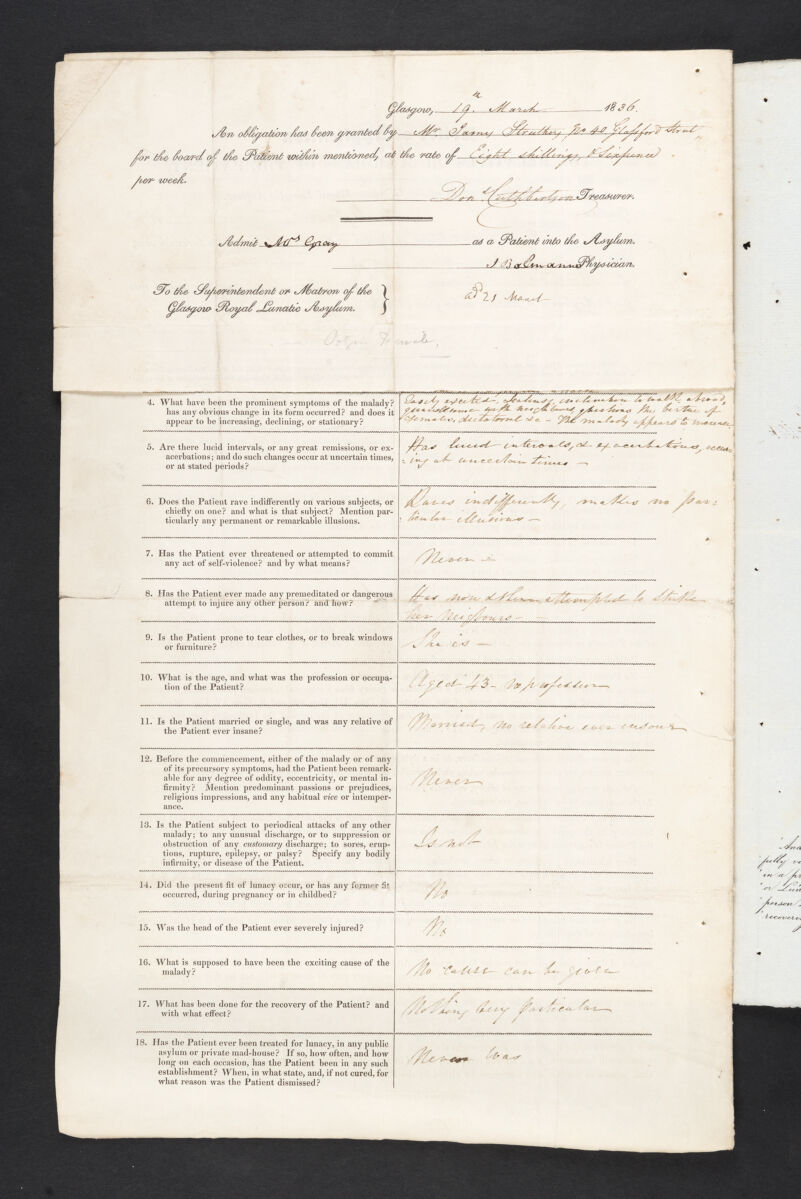 Glasgow, 19th March 1836.
An obligation has been granted by Mr. James Struthers No 40 Glassford Street
for the board of the Patient within mentioned, at the rate of Eight shillings, & Sixpence
per week.
Don Cuthbertson Treasurer.
Admit Mrs Gray as a Patient into the Asylum.
J Balmanno Physician.
To the Superintendent or Matron of the
Glasgow Royal Lunatic Asylum.
ad 21 March
Female.
4. What have been the prominent symptoms of the malady? Easily excited, jealous, inclination to walk abroad,
has any obvious change in its form occurred? and does it quarrelsome with neighbours, questions the virtue of
appear to be increasing, declining, or stationary? females, dictatorial &c - The malady appears to increase
5. Are there lucid intervals, or any great remissions, or ex- Has lucid intervals, & exacerbations, occur-
acerbations; and do such changes occur at uncertain times, ring at uncertain times -
or at stated periods?
6. Does the Patient rave indifferently on various subjects, or Raves indifferently, makes no par:
chiefly on one? and what is that subject? Mention par- :ticular illusions -
ticularly any permanent or remarkable illusions.
7. Has the Patient ever threatened or attempted to commit Never -
any act of self-violence? and by what means?
8. Has the Patient ever made any premeditated or dangerous Has now & then attempted to strike
attempt to injure any other person? and how? her neighbours -
9. Is the Patient prone to tear clothes, or to break windows She is -
or furniture?
10. What is the age, and what was the profession or occupa- Aged 43 - no profession
tion of the Patient?
11. Is the Patient married or single, and was any relative of Married, no relative ever insane
the Patient ever insane?
12. Before the commencement, either of the malady or of any
of its precursory symptoms, had the Patient been remark-
able for any degree of oddity, eccentricity, or mental in- Never
firmity? Mention predominant passions or prejudices,
religious impressions, and any habitual vice or intemper-
ance.
13. Is the Patient subject to periodical attacks of any other
malady; to any unusual discharge, or to suppression or Is not
obstruction of any customary discharge; to sores, erup-
tions, rupture, epilepsy, or palsy? Specify any bodily
infirmity, or disease of the Patient.
14. Did the present fit of lunacy occur, or has any former fit No
occurred, during pregnancy or in childbed?
15. Was the head of the Patient ever severely injured? No
16. What is supposed to have been the exciting cause of the No cause can be given
malady?
17. What has been done for the recovery of the Patient? and Nothing very particular
with what effect?
18. Has the Patient ever been treated for lunacy, in any public Never was
asylum or private mad-house? If so, how often, and how
long on each occasion, has the Patient been in any such
establishment? When, in what state, and, if not cured, for
what reason was the Patient dismissed?